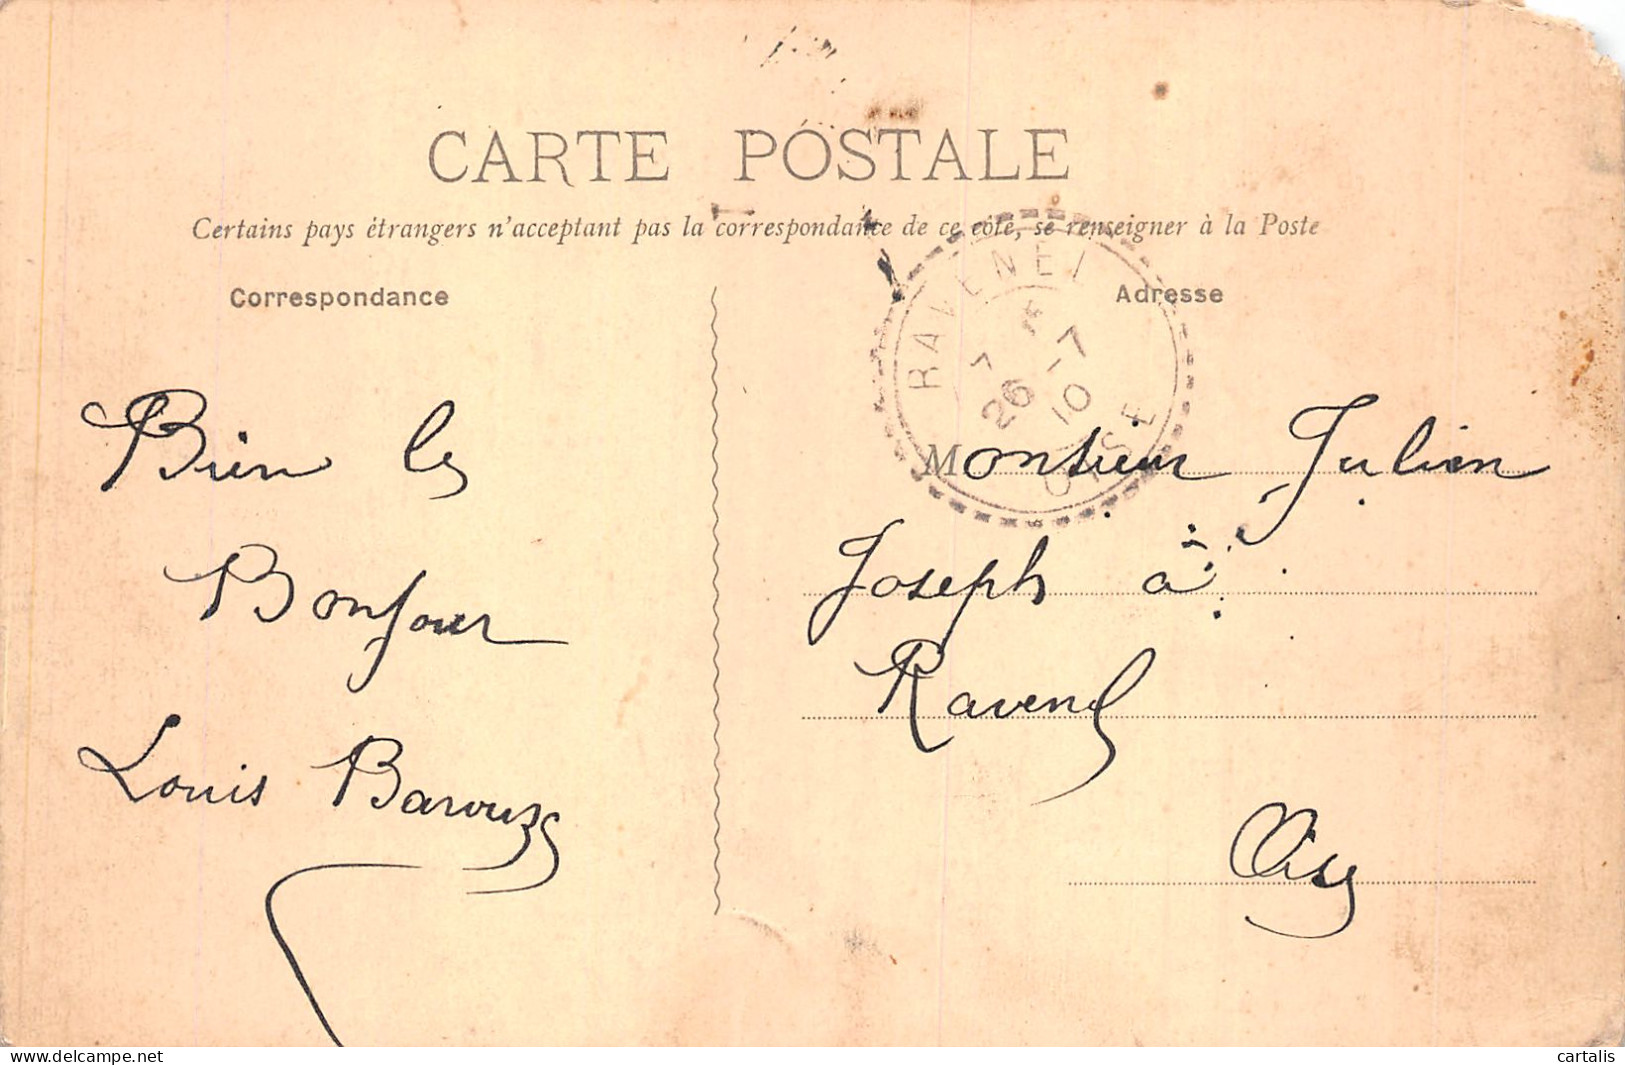 CARTE POSTALE
Certains pays étrangers n'acceptant pas la correspondance de ce côté, se renseigner à la Poste
Correspondance
Adresse
RAVENEL
26 -7
10
OISE
Bien les
Bonjour
Louis
Monsieur Julien
Joseph à
Ravenel
Oise
www.delcampe.net
cartalis